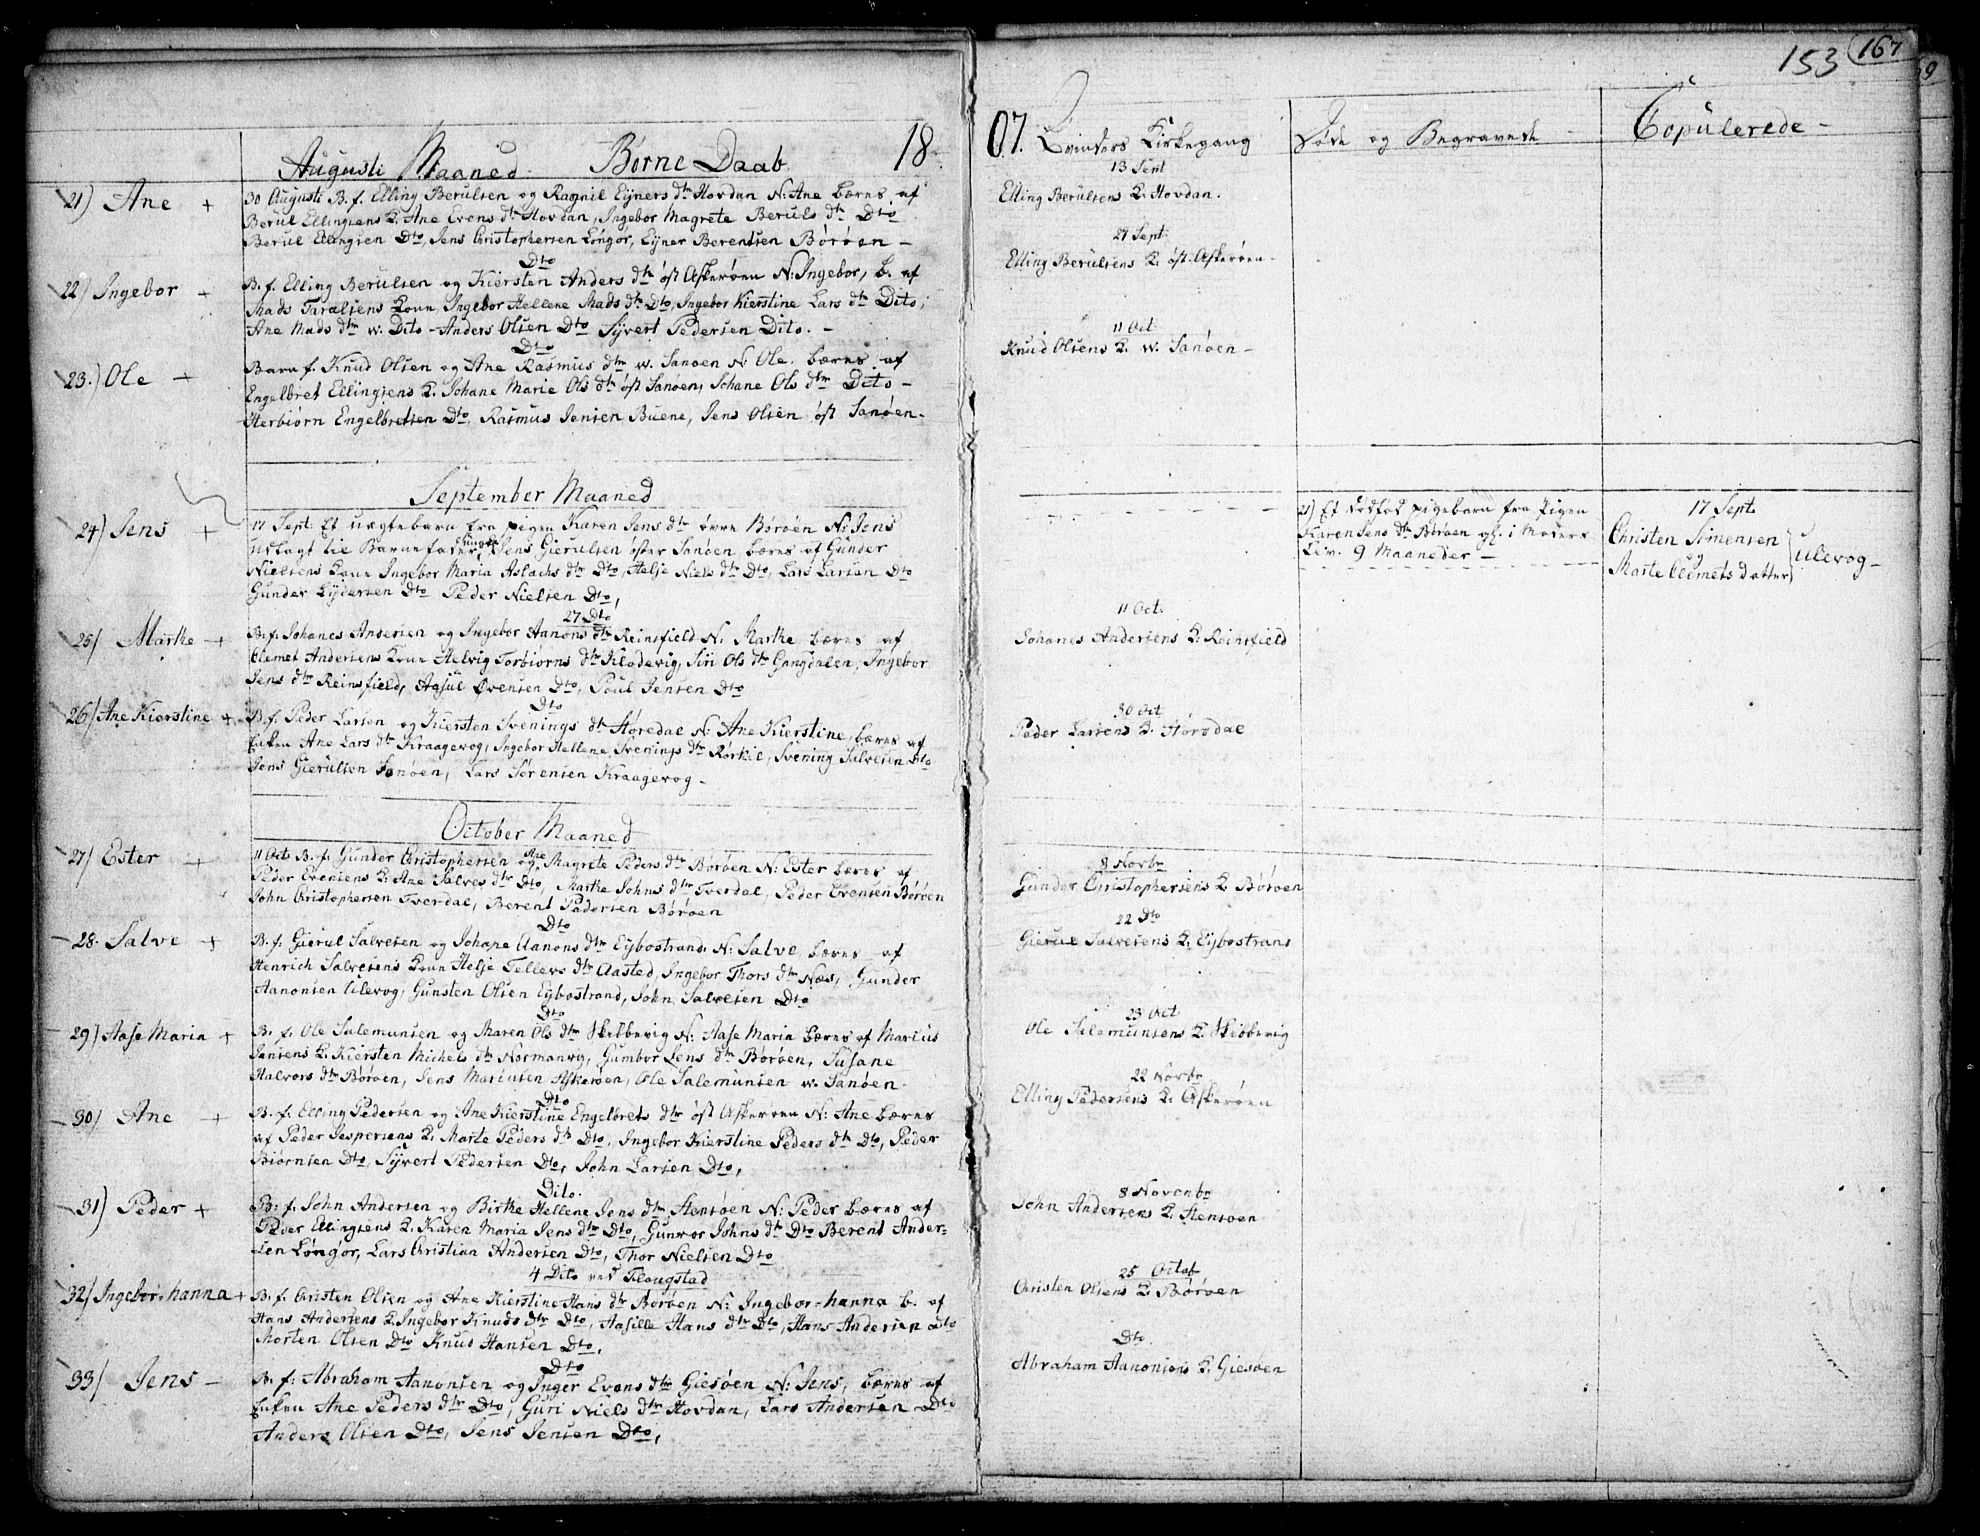 153 167
Augusti Maaned. Børne Daab 18
21) Ane +
30 Augusti B. f. Elling Berulsen og Ragnil Eyners dtr Hovdan N: Ane bæres af
Berul Ellingsens K. Ane Evens dtr Hovdan, Ingebor Magrete Beruls dtr Dto
Berul Ellingsen Dto, Jens Christophersen Longor, Eyner Berentsen Børøen –
Dto
22) Ingebor +
B. f. Elling Berulsen og Kiersten Anders dtr øst Askerøen N: Ingebor, b. af
Mads Taralsens Koun Ingebor Hellene Mads dtr Dto, Ingebor Kierstine Lars dtr Dito,
Ane Mads dtr w. Dito – Anders Olsen Dto Syvert Pedersen Dito. –
Dto
23.) Ole +
Barn f. Knud Olsen og Ane Rasmus dtr w. Sanøen N: Ole. bæres af
Engelbret Ellingsens K. Johane Marie Ols dtr øst Sanøen, Johane Ols dtr Dito –
Herbiørn Engelbretsen Dto, Rasmus Jensen Buene, Jens Olsen øst Sanøen –
September Maaned
24) Jens +
17 Sept: Et uægtebarn fra pigen Karen Jens dtr øvre Børøen N: Jens
udlagt til Barnefader, Jens Gierulsen øster Sanøen bæres af Gunder
Nielsens Koun Ingebor Maria Aslachs dtr Dto, Helje Niels dtr Dto, Lars Larsen Dto
Gunder Eydersen Dto Peder Nielsen Dto,
27 Dto
25) Marthe +
B. f. Johanes Andersen og Ingebor Aanons dtr Reinsfield N: Marthe bæres af
Clemet Andersens Koun Helvig Torbiorns dtr Klodevig, Siri Ols dtr Gongdalen, Ingebor
Jens dtr Reinsfield, Aasul Ovensen Dto, Poul Jensen Dto
Dto
26) Ane Kierstine +
B. f. Peder Larsen og Kiersten Svenings dtr Høredal N: Ane Kierstine, bæres af
Enken Ane Lars dtr Kraagevog, Ingebor Hellene Svenings dtr Rørkil, Svening Salvesen Dto
Jens Gierulsen Sanøen, Lars Sørensen Kraagevog –
October Maaned
27) Ester +
11 Oct: B. f. Gunder Christophersen og Ane Magrete Peders dtr Børøen N: Ester bæres af
Peder Evensens K. Ane Salves dtr Dto, Marthe Johns dtr Tverdal, Peder Evensen Børøen
John Christophersen Tverdal, Berent Pedersen Børøen
Dto
28. Salve +
B. f. Gierul Salvesen og Johane Aanons dtr Eybostrand. N: Salve, bæres af
Henrich Salvesens Koun Helje Tellevs dtr Aasted, Ingebor Thors dtr Næs, Gunder
Aanonsen Ulevog, Gunsten Olsen Eybostrand, John Salvesen Dto
Dto
29) Aase Maria +
B. f. Ole Salemunsen og Maren Ols dtr Skibbevig N: Aase Maria bæres af Marcus
Jensens K. Kiersten Michels dtr Normanvig, Gumbor Jens dtr Børøen, Susane
Halvors dtr Børøen, Jens Marcusen Askerøen, Ole Salemunsen w. Sanøen –
Dto
30) Ane +
B. f. Elling Pedersen og Ane Kierstine Engelbrets dtr øst Askerøen N: Ane bæres
af Peder Jespersens K. Marte Peders dtr Dto, Ingebor Kierstine Peders dtr Dto, Peder
Biørnsen Dto, Syvert Pedersen Dto, John Larsen Dto,
Dito.
31) Peder +
B. f. John Andersen og Birthe Hellene Jens dtr Stensøen N: Peder bæres af
Peder Ellingsens K. Karen Maria Jens dtr Dto, Gunvor Johns dtr Dto Berent Ander-
sen Longor, Lars Christian Andersen Dto, Thor Nielsen Dto
4 Dito ved Flougstad
32) Ingebor-hanna +
B. f. Christen Olsen og Ane Kierstine Hans dtr Børøen N: Ingebor-hanna b. af
Hans Andersens K. Ingebor Knuds dtr Dto, Aasille Hans dtr Dto, Hans Andersen Dto
Morten Olsen Dto Knud Hansen Dto,
Dto
33) Jens –
B. f. Abraham Aanonsen og Inger Evens dtr Giesøen N: Jens, bæres af
Enken Ane Peders dtr Dto, Guri Niels dtr Hovdan, Lars Andersen Dto
Anders Olsen Dto, Jens Jensen Dto,
07. Qvinders Kirkegang
13 Sept
Elling Berulsens K. Hovdan.
27 Sept
Elling Berulsens K. øst Askerøen –
11 Oct
Knud Olsens K. w. Sanøen –
11 Oct:
Johanes Andersens K. Reinsfield
30 Oct
Peder Larsens K. Hørødal
8 Novbr
Gunder Christophersens K. Børøen
22 Dto
Gierul Salvesens K. Eybostrand
23 Oct
Ole Salemunsens K. Skibbevig
22 Novbr
Elling Pedersens K. Askerøen
8 Novenbr
John Andersens K. Stensøen
25 Octob
Christen Olsens K. Børøen
Dto.
Abraham Aanonsens K. Giesøen
Døde og Begravede –
21) Et dødfød pigebarn fra Pigen
Karen Jens dtr Børøen gl. i Moders
Liv. 9 Maaneder –
Copulerede –
17 Sept.
Christen Simensen
og
Marte Clemets Datter
Ulevog –